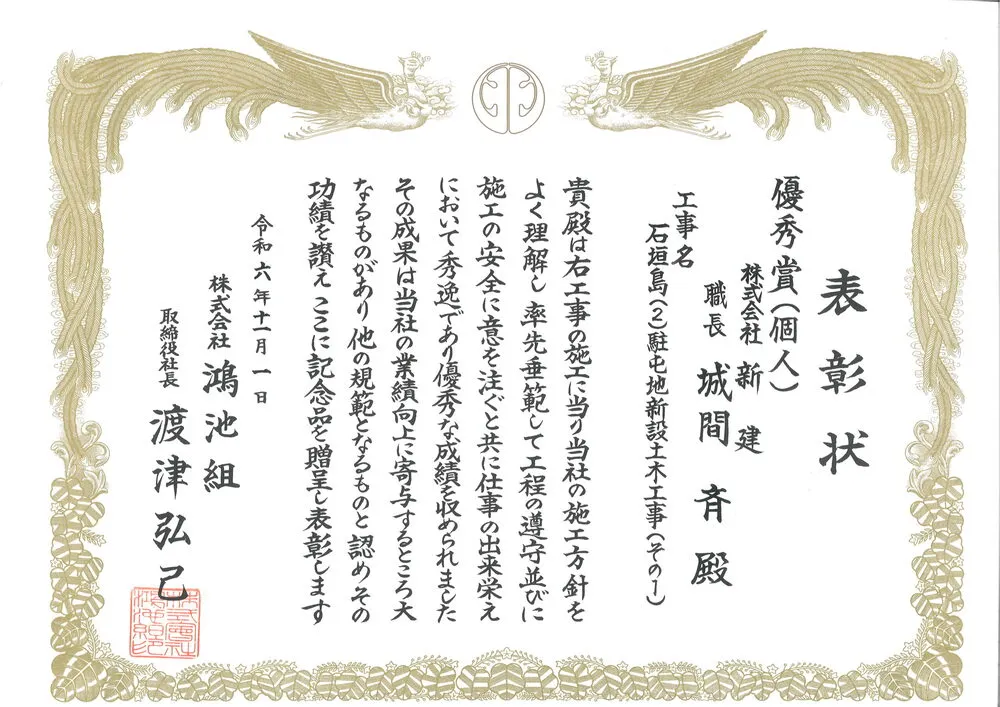 表彰状
優秀賞(個人)
株式会社 新建
職長 城間 斉 殿
工事名
石垣島(2)駐屯地新設土木工事(その1)
貴殿は右工事の施工に当り当社の施工方針を
よく理解し 率先垂範して工程の遵守並びに
施工の安全に意を注ぐと共に仕事の出来栄え
において秀逸であり優秀な成績を収められました
その成果は当社の業績向上に寄与するところ大
なるものがあり 他の規範となるものと認め その
功績を讃え ここに記念品を贈呈し表彰します
令和六年十一月一日
株式会社 鴻池組
取締役社長 渡津弘己
株式會社鴻池組印